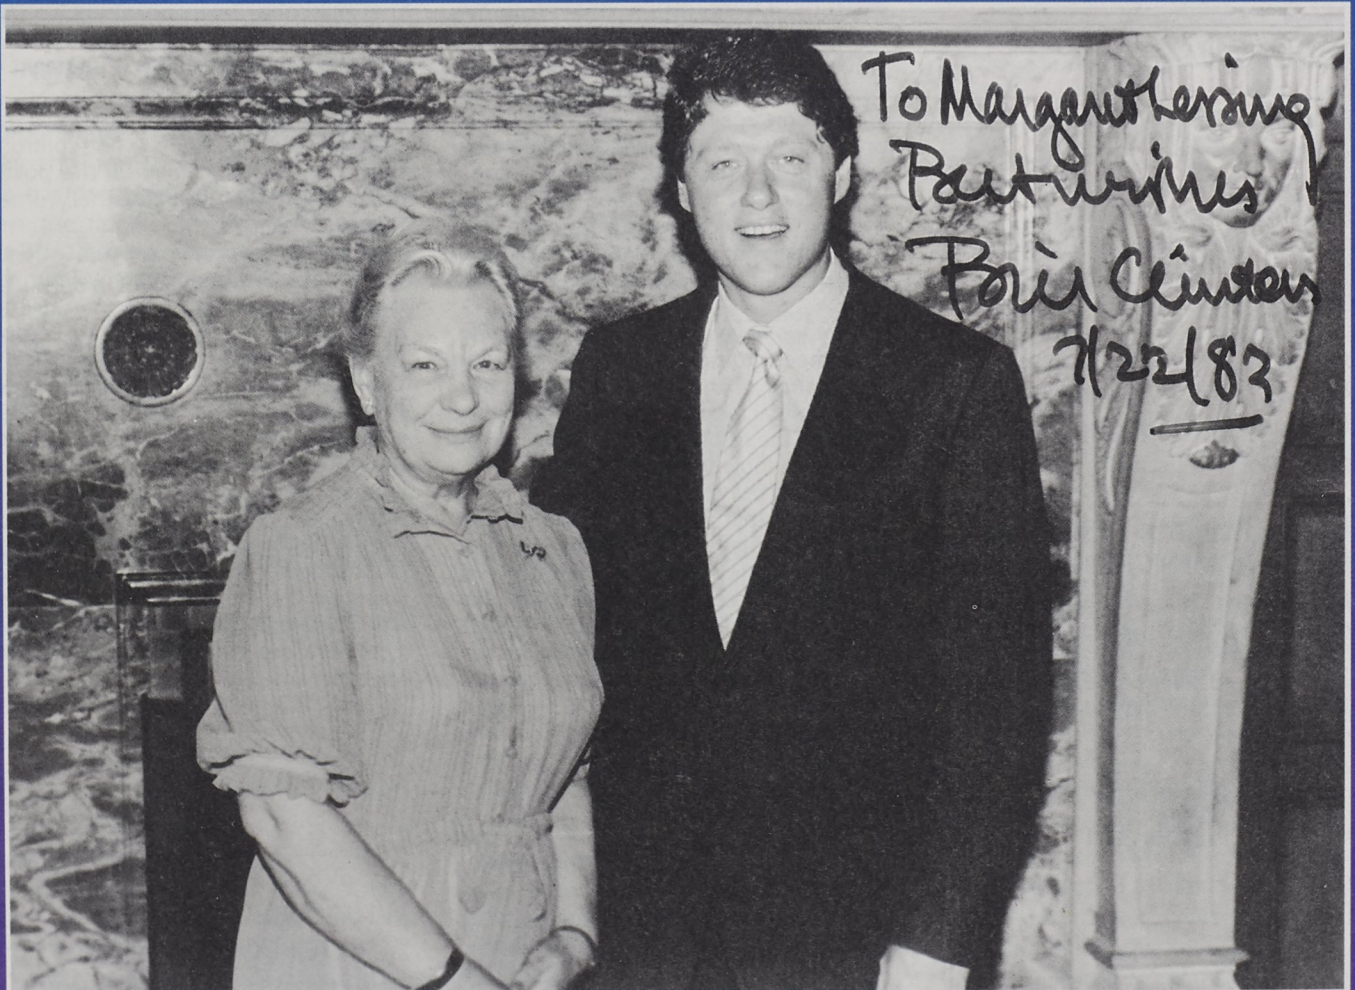 To Margaret Lessing
Best wishes
Bill Clinton
7/22/83